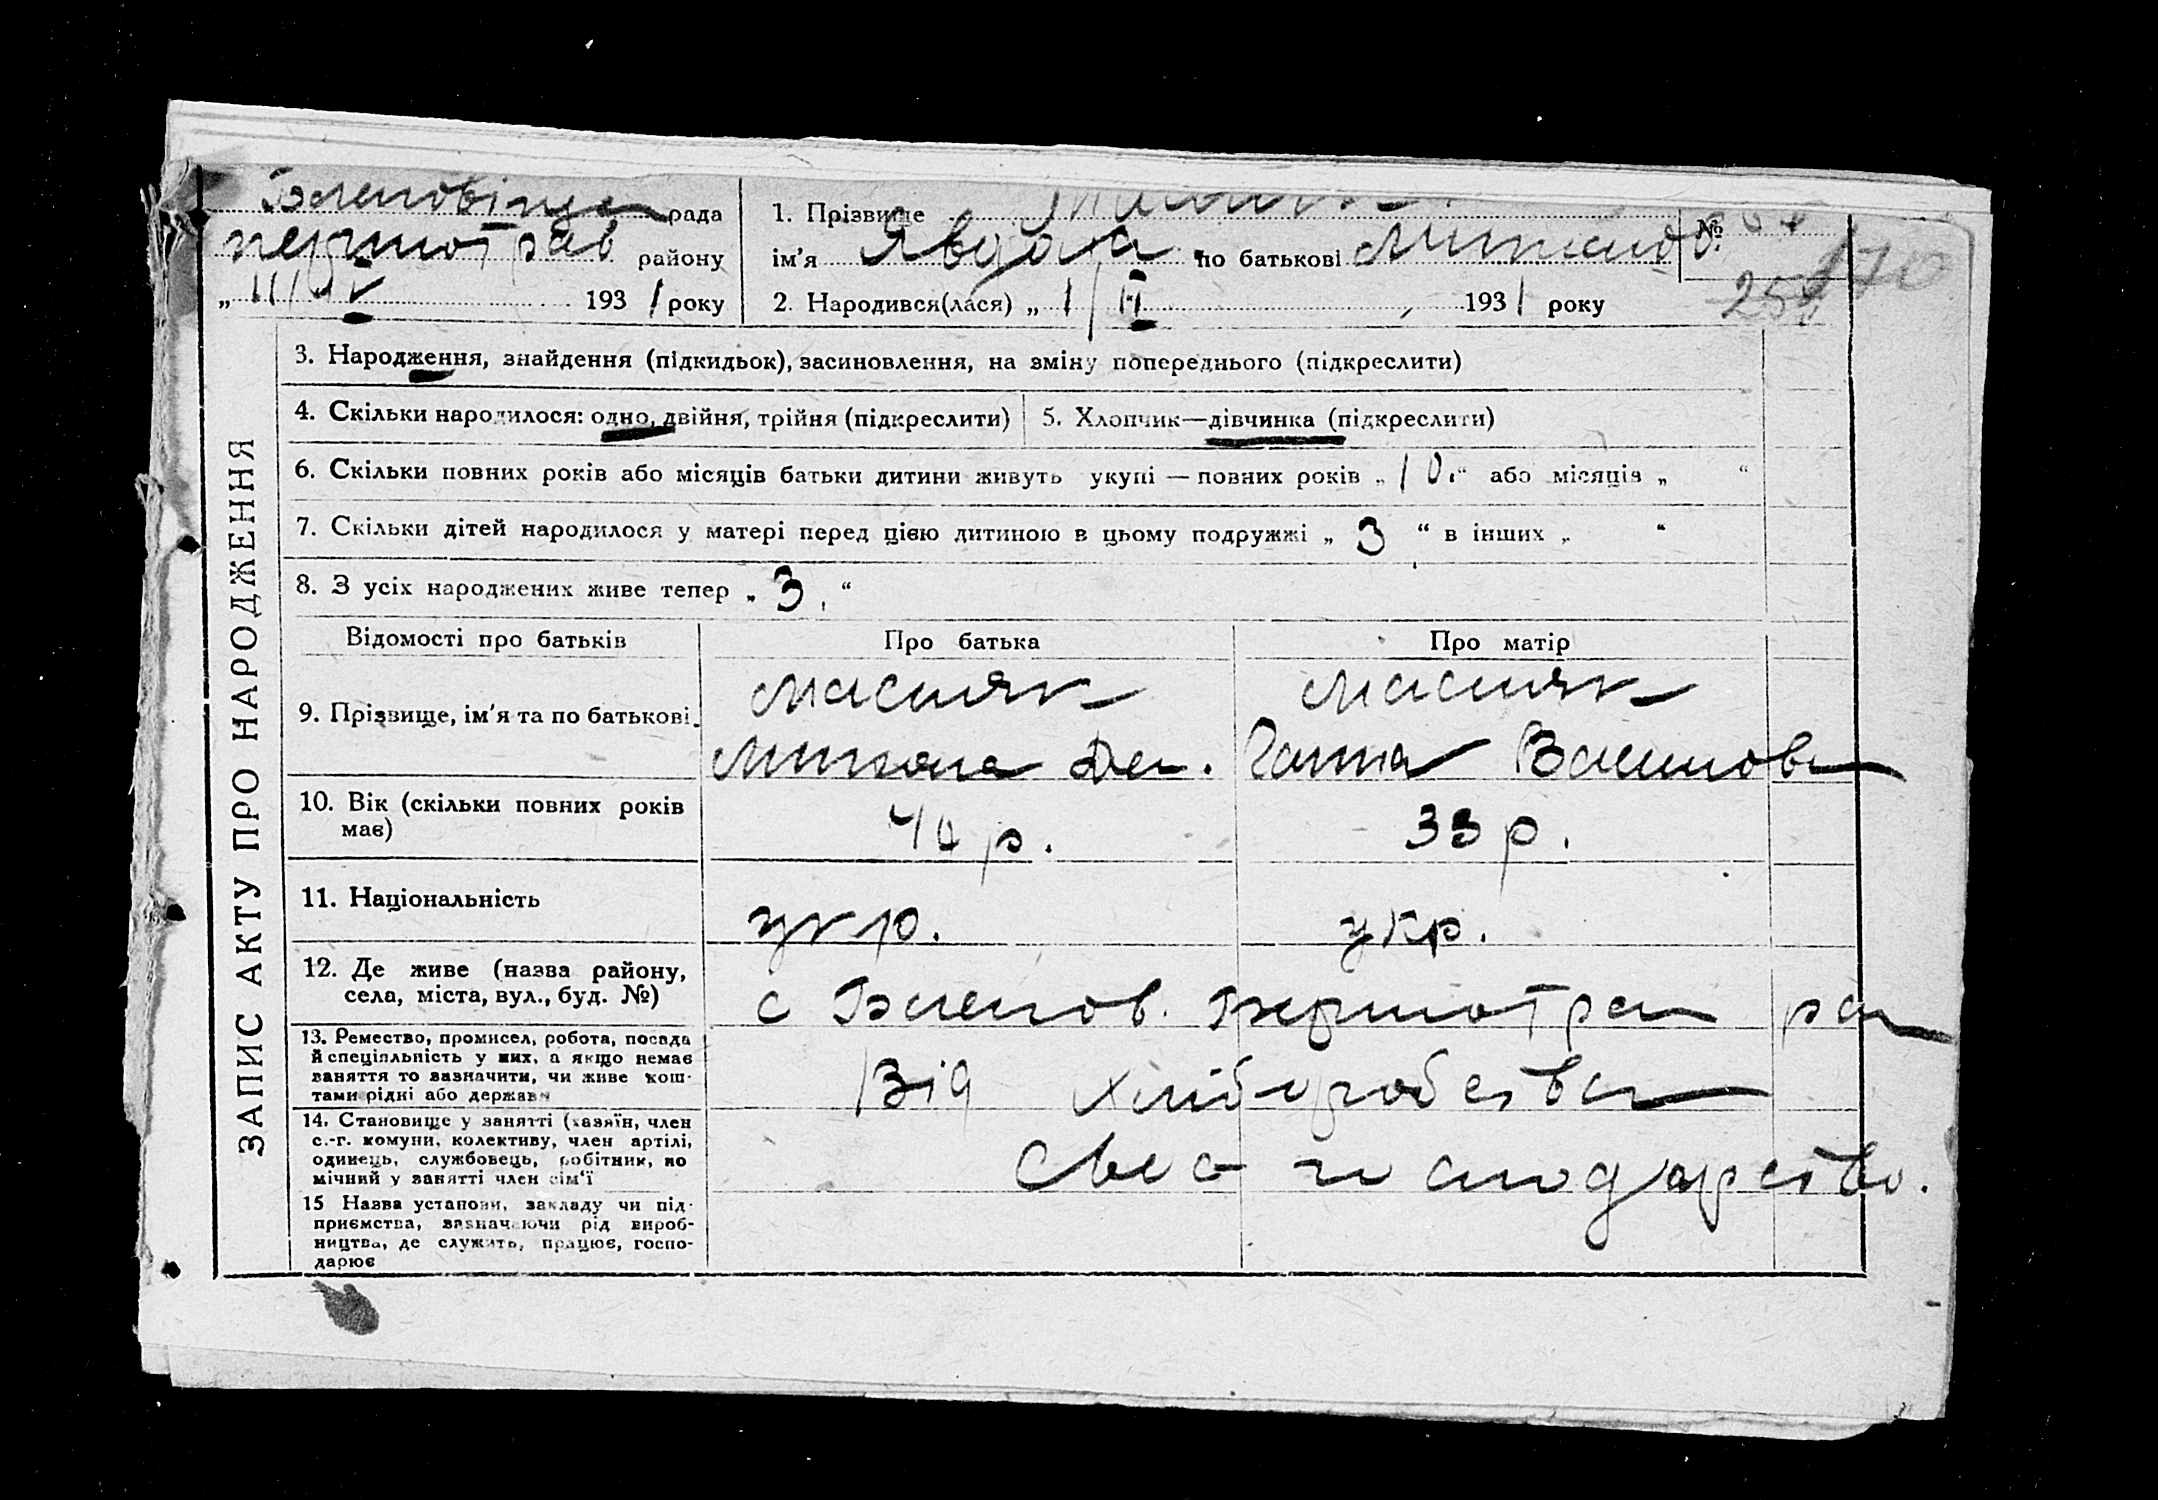 рада
1. Прізвище
№
району
ім'я Явдоха по батькові
„ 11/IV 1931 року
2. Народився(лася) „ 1/II 1931 року
ЗАПИС АКТУ ПРО НАРОДЖЕННЯ
3. Народження, знайдення (підкидьок), засиновлення, на зміну попереднього (підкреслити)
4. Скільки народилося: одно, двійня, трійня (підкреслити)
5. Хлопчик—дівчинка (підкреслити)
6. Скільки повних років або місяців батьки дитини живуть укупі — повних років „ 10 “ або місяців „ “
7. Скільки дітей народилося у матері перед цією дитиною в цьому подружжі „ 3 “ в інших „ “
8. З усіх народжених живе тепер „ 3 “
Відомості про батьків
Про батька
Про матір
9. Прізвище, ім'я та по батькові
Масляк
Масляк
10. Вік (скільки повних років
має)
40 р.
33 р.
11. Національність
укр.
укр.
12. Де живе (назва району,
села, міста, вул., буд. №)
13. Ремество, промисел, робота, посада
й спеціяльність у них, а якщо немає
заняття то зазначити, чи живе кош-
тами рідні або держави
Від хліборобства
14. Становище у занятті (хазяїн, член
с.-г. комуни, колективу, член артілі,
одинець, службовець, робітник, по
мічний у занятті член сім'ї
15 Назва установи, закладу чи під-
приємства, зазначаючи рід вироб-
ництва, де служить, працює, госпо-
дарює